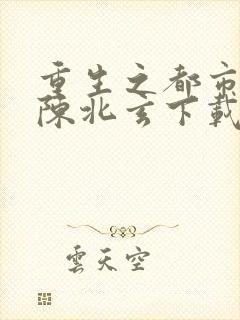 重生之都市
陳北玄下載
雲天空